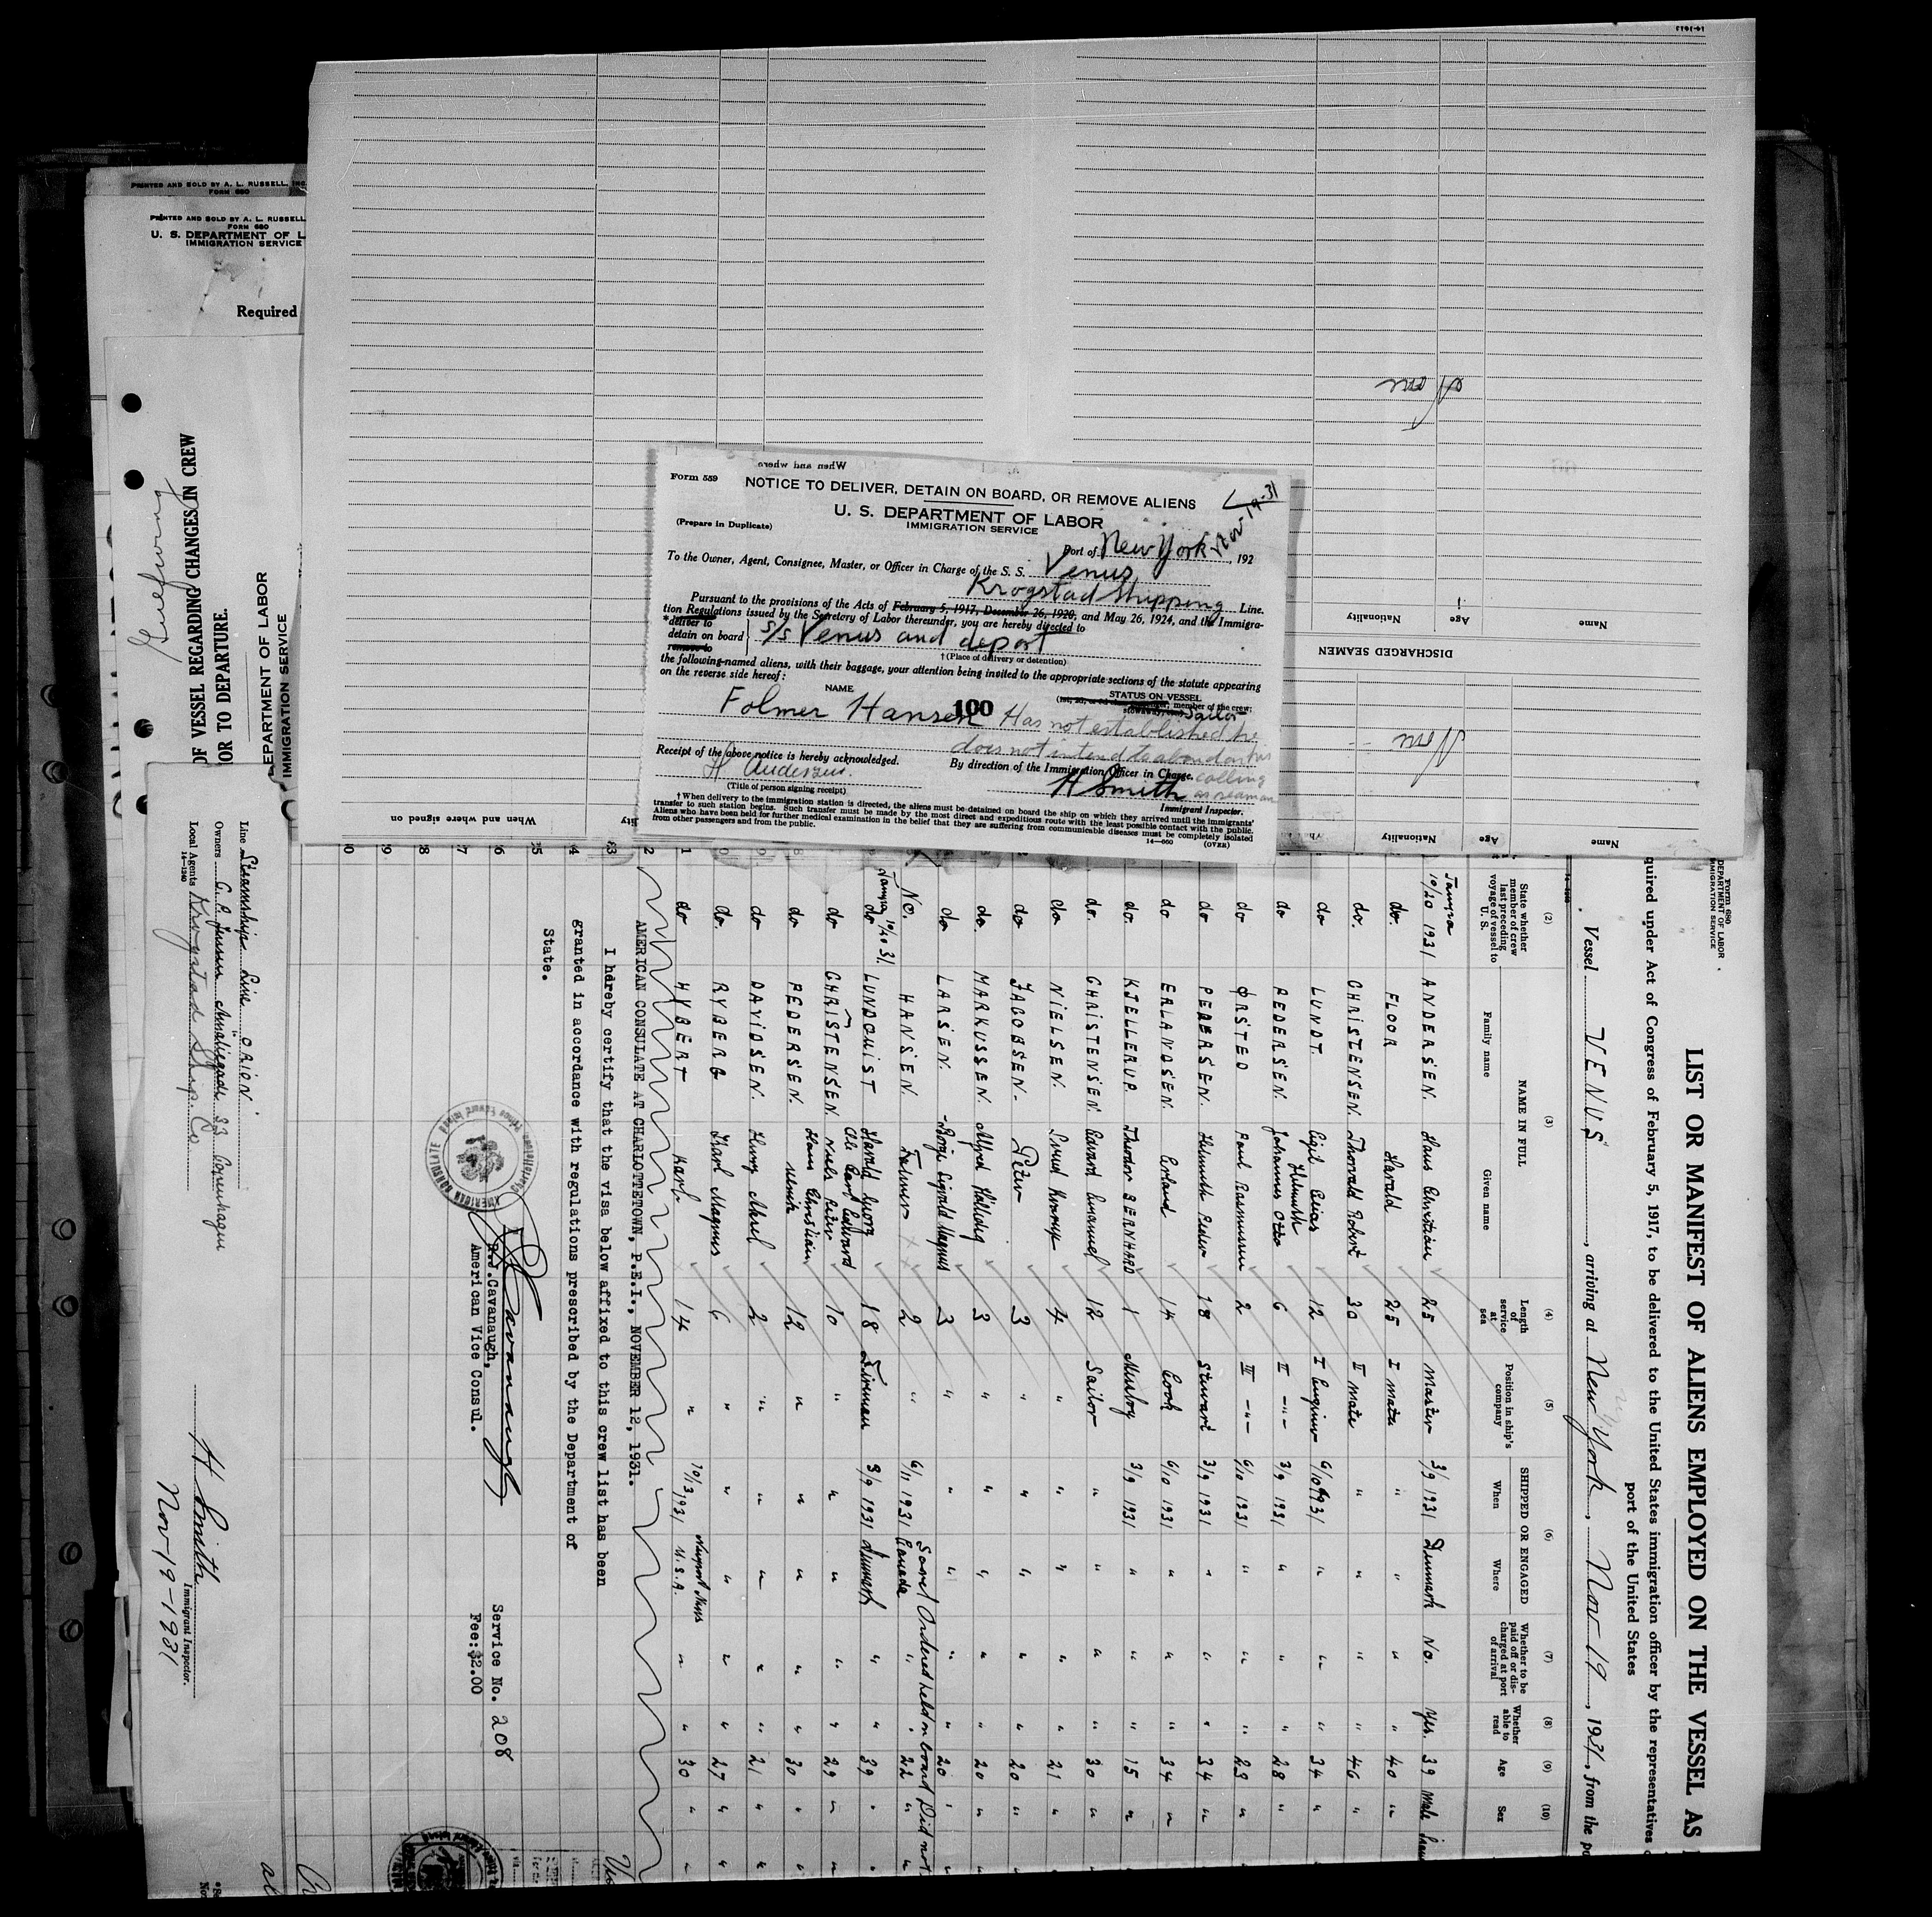 PRINTED AND SOLD BY A. L. RUSSELL, INC.
FORM 680
PRINTED AND SOLD BY A. L. RUSSELL
FORM 680
U. S. DEPARTMENT OF L
IMMIGRATION SERVICE
Required
OF VESSEL REGARDING CHANGES IN CREW
OR TO DEPARTURE.
DEPARTMENT OF LABOR
IMMIGRATION SERVICE
None
Name
Age
Nationality
DISCHARGED SEAMEN
None
Name
Age
Nationality
When and where signed on
When and where
Form 559
NOTICE TO DELIVER, DETAIN ON BOARD, OR REMOVE ALIENS
U. S. DEPARTMENT OF LABOR
IMMIGRATION SERVICE
(Prepare in Duplicate)
Port of New York Nov-19-31, 192
To the Owner, Agent, Consignee, Master, or Officer in Charge of the S. S. Venus
Krogstad Shipping Line.
Pursuant to the provisions of the Acts of February 5, 1917, December 26, 1920, and May 26, 1924, and the Immigra-
tion Regulations issued by the Secretary of Labor thereunder, you are hereby directed to
*deliver to
detain on board S/S Venus and deport
remove to
†(Place of delivery or detention)
the following-named aliens, with their baggage, your attention being invited to the appropriate sections of the statute appearing
on the reverse side hereof:
NAME
STATUS ON VESSEL
member of the crew;
Sailor
Folmer Hansen 100 Has not established he
does not intend to abandon his
calling
as seaman
Receipt of the above notice is hereby acknowledged.
By direction of the Immigration Officer in Charge.
H Andersen.
H Smith
(Title of person signing receipt)
Immigrant Inspector.
† When delivery to the immigration station is directed, the aliens must be detained on board the ship on which they arrived until the immigrants'
transfer to such station begins. Such transfer must be made by the most direct and expeditious route with the least possible contact with the public.
Aliens who have been held for further medical examination in the belief that they are suffering from communicable diseases must be completely isolated
from other passengers and from the public.
14—660
(OVER)
Form 680
DEPARTMENT OF LABOR
IMMIGRATION SERVICE
LIST OR MANIFEST OF ALIENS EMPLOYED ON THE VESSEL AS
quired under Act of Congress of February 5, 1917, to be delivered to the United States immigration officer by the representatives
port of the United States
Vessel VENUS, arriving at New York, Nov 19, 1931, from the po
(2) (3) (4) (5) (6) (7) (8) (9) (10)
State whether member of crew last preceding voyage of vessel to U. S.
NAME IN FULL
Family name
Given name
Length of service at sea
Position in ship's company
SHIPPED OR ENGAGED
When
Where
Whether to be paid off or discharged at port of arrival
Whether able to read
Age
Sex
Tampa
10/20 1931 ANDERSEN. Hans Christian 25 Master 3/9 1931 Denmark No. Yes. 39 Male
do. FLOOR Harald 25 I mate " " " " 40 "
do. CHRISTENSEN. Thorvald Robert 30 II mate " " " " 46 "
do LUNDT. 12 I Engineer 6/10 1931 " " " 34 "
do PEDERSEN. Johannes Otto Helmuth 6 II -"- 3/9 1931 " " " 28 "
do ØRSTED Paul Rasmussen 2 III -"- 6/10 1931 " " " 23 "
do PEDERSEN. Helmuth Peder 18 Stewart 3/9 1931 " " " 34 "
do ERLANDSEN. Erland 14 Cook 6/10 1931 " " " 34 "
do. KJELLERUP. Theodor BERNHARD 1 Messboy 3/9 1931 " " " 15 "
do. CHRISTENSEN. Edvard Emanuel 12 Sailor " " " " 30 "
do NIELSEN. 4 " " " " " 21 "
do JACOBSEN. Peter 3 " " " " " 20 "
do. MARKUSSEN. Alfred 3 " " " " " 20 "
do. LARSEN. Børge Sigvald Magnus 3 " " " " " 20 "
No. HANSEN. Folmer 2 " 6/11 1931 Canada " " 22 "
Sorel Ordered held on board Did not
Tampa 10/20 31
do LUNDQUIST Harald Georg 18 Fireman 3/9 1931 Denmark " " 39 "
do CHRISTENSEN. Niels Peter 10 " " " " " 29 "
do PEDERSEN. Hans Christian Henrik 12 " " " " " 30 "
do DAVIDSEN. Axel 2 " " " " " 21 "
do. RYBERG Karl Magnus 6 " " " " " 27 "
do HYBERT Karl. 14 " 10/3 1931 Newport News U.S.A. " " 30 "
AMERICAN CONSULATE AT CHARLOTTETOWN, P.E.I., NOVEMBER 12, 1931.
I hereby certify that the visa below affixed to this crew list has been
granted in accordance with regulations prescribed by the Department of
State.
R.J.Cavanaugh,
American Vice Consul.
Service No. 208
Fee:$2.00
AMERICAN CONSULATE
Line Steamship Line "ORION"
Owners C.P. Jensen Amaliegade 33 Copenhagen
Local Agents Krogstad Shipp. Co
14—1240
H Smith
Immigrant Inspector.
Nov-19-1931